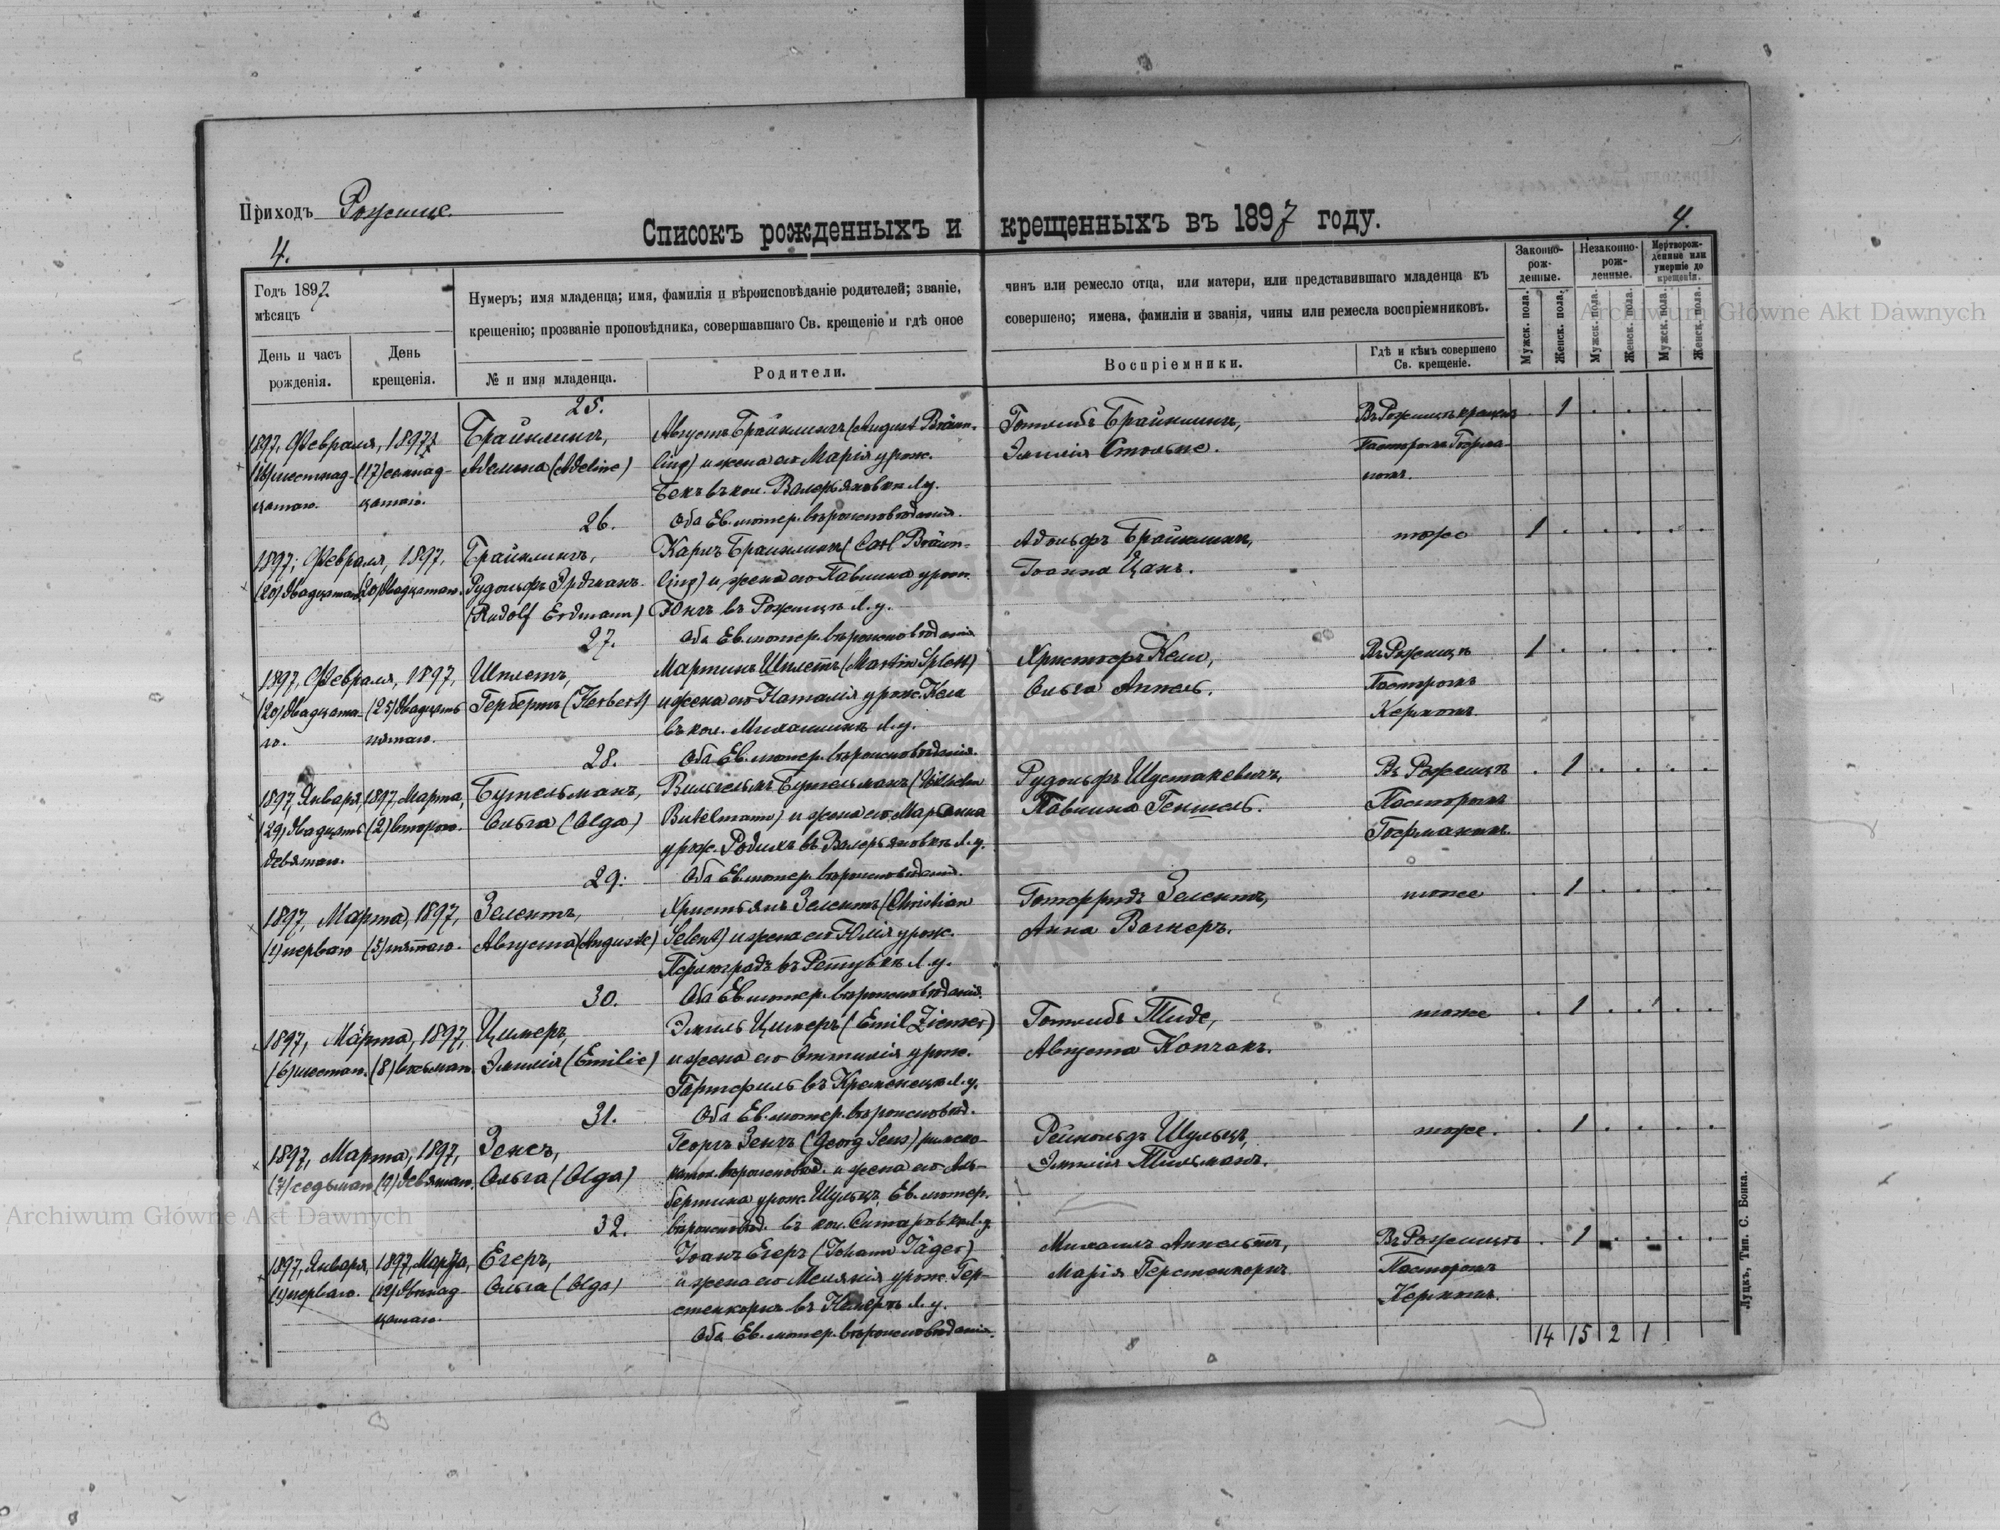 Приходъ Рожище.
Списокъ рожденныхъ и крещенныхъ въ 1897 году.
4.
4.
Годъ 1897
мѣсяцъ
День и часъ
рожденія.
День
крещенія.
Нумеръ; имя младенца; имя, фамилія и вѣроисповѣданіе родителей; званіе,
крещенію; прозваніе проповѣдника, совершавшаго Св. крещеніе и гдѣ оное
№ и имя младенца.
Родители.
чинъ или ремесло отца, или матери, или представившаго младенца къ
совершено; имена, фамиліи и званія, чины или ремесла воспріемниковъ.
Воспріемники.
Гдѣ и кѣмъ совершено
Св. крещеніе.
Законно-
рож-
денные.
Незаконно-
рож-
денные.
Мертворож-
денные или
умершіе до
крещенія.
Мужск. пола.
Женск. пола.
Мужск. пола.
Женск. пола.
Мужск. пола.
Женск. пола.
25.
1897, Февраля, 1897,
(16) шестнад-
цатаго.
(17) семнад-
цатаго.
Брайнлингъ,
Аделина (Adeline)
Августъ Брайнлингъ (August Bräun-
ling) и жена его Марія урож.
Бекъ въ кол. Валерьяновкѣ Л. у.
Оба Ев. лютер. вѣроисповѣданія.
Готлибъ Брайнлингъ,
Эмилія Стольке.
Въ Рожищѣ
Пасторомъ
1
26.
1897, Февраля, 1897,
(20) двадцатаго (20) двадцатаго.
Брайнлингъ,
Рудольфъ Эрдманъ
(Rudolf Erdmann)
Карлъ Брайнлингъ (Carl Bräun-
ling) и жена его Павлина урож.
Юнгъ въ Рожищѣ Л. у.
Оба Ев. лютер. вѣроисповѣданія
Адольфъ Брайнлингъ,
Іоанна Цанъ.
тоже
1
27.
1897, Февраля, 1897,
(20) двадцата-
го.
(25) двадцать
пятаго.
Шплетъ,
Гербертъ (Herbert)
Мартинъ Шплетъ (Martin Splett)
и жена его Наталія урож. Кельм
въ кол. Л. у.
Оба Ев. лютер. вѣроисповѣданія.
Христофъ
Ольга Аппель.
Въ Рожищѣ
Пасторомъ
Керномъ.
1
28.
1897, Января, 1897, Марта,
(29) двадцать (2) второго.
девятаго.
Бутельманъ,
Ольга (Olga)
Вильгельмъ Бутельманъ (Wilhelm
Butelmann) и жена его Маріанна
урож. Радихъ въ Валерьяновкѣ Л. у.
Оба Ев. лютер. вѣроисповѣданія.
Рудольфъ Шустакевичъ,
Павлина Геншель.
Въ Рожищѣ
Пасторомъ
1
29.
1897, Марта, 1897,
(1) перваго (5) пятаго.
Зелентъ,
Августа (Auguste)
Христьянъ Зелентъ (Christian
Selent) и жена его Юлія урож.
Оба Ев. лютер. вѣроисповѣданія.
Готфридъ Зелентъ,
Анна Вагнеръ.
тоже
1
30.
1897, Марта, 1897,
(6) шестаго. (8) восьмаго.
Цимеръ,
Эмилія (Emilie)
Эмиль Цимеръ (Emil Ziemer)
и жена его Оттилія урож.
Оба Ев. лютер. вѣроисповѣд.
Готлибъ Тидe,
Августа Копчакъ.
тоже
1
31.
1897, Марта, 1897,
(7) седьмаго (9) девятаго.
Зенсъ,
Ольга (Olga)
Георгъ Зенсъ (Georg Sens) римско-
катол. вѣроисповѣд. и жена его Аль-
бертина урож. Шульцъ, Ев. лютер.
вѣроисповѣд. въ кол. Л. у.
Рейнольдъ Шульцъ,
Эмилія Тильманъ.
тоже.
1
32.
1897, Января, 1897, Марта,
(1) перваго. (12) двенад-
цатаго.
Егеръ,
Ольга (Olga)
Іоанъ Егеръ (Johann Jäger)
и жена его Меланія урож. Гер-
стенкорнъ въ Л. у.
Оба Ев. лютер. вѣроисповѣданія.
Михаилъ
Марія Герстенкорнъ
Въ Рожищѣ
Пасторомъ
Керномъ.
1
14 15 2 1
Луцкъ, Тип. С. Бонка.
Archiwum Główne Akt Dawnych
Archiwum Główne Akt Dawnych